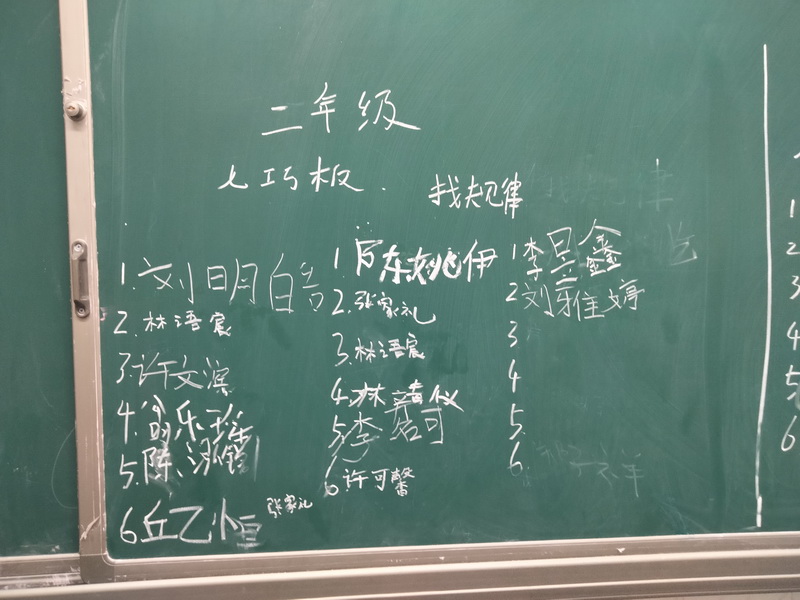 二年级
七巧板
找规律
1.刘明皓
2.林语宸
3.许文滨
4.翁乐瑶
5.陈泓锦
6丘乙恒
张家礼
1陈姚伊
2.张家礼
3.林语宸
4.林靖仪
5李若可
6许可馨
1李昱鑫
2刘雅婷
3
4
5.
6.
1
2
3
4
5
6